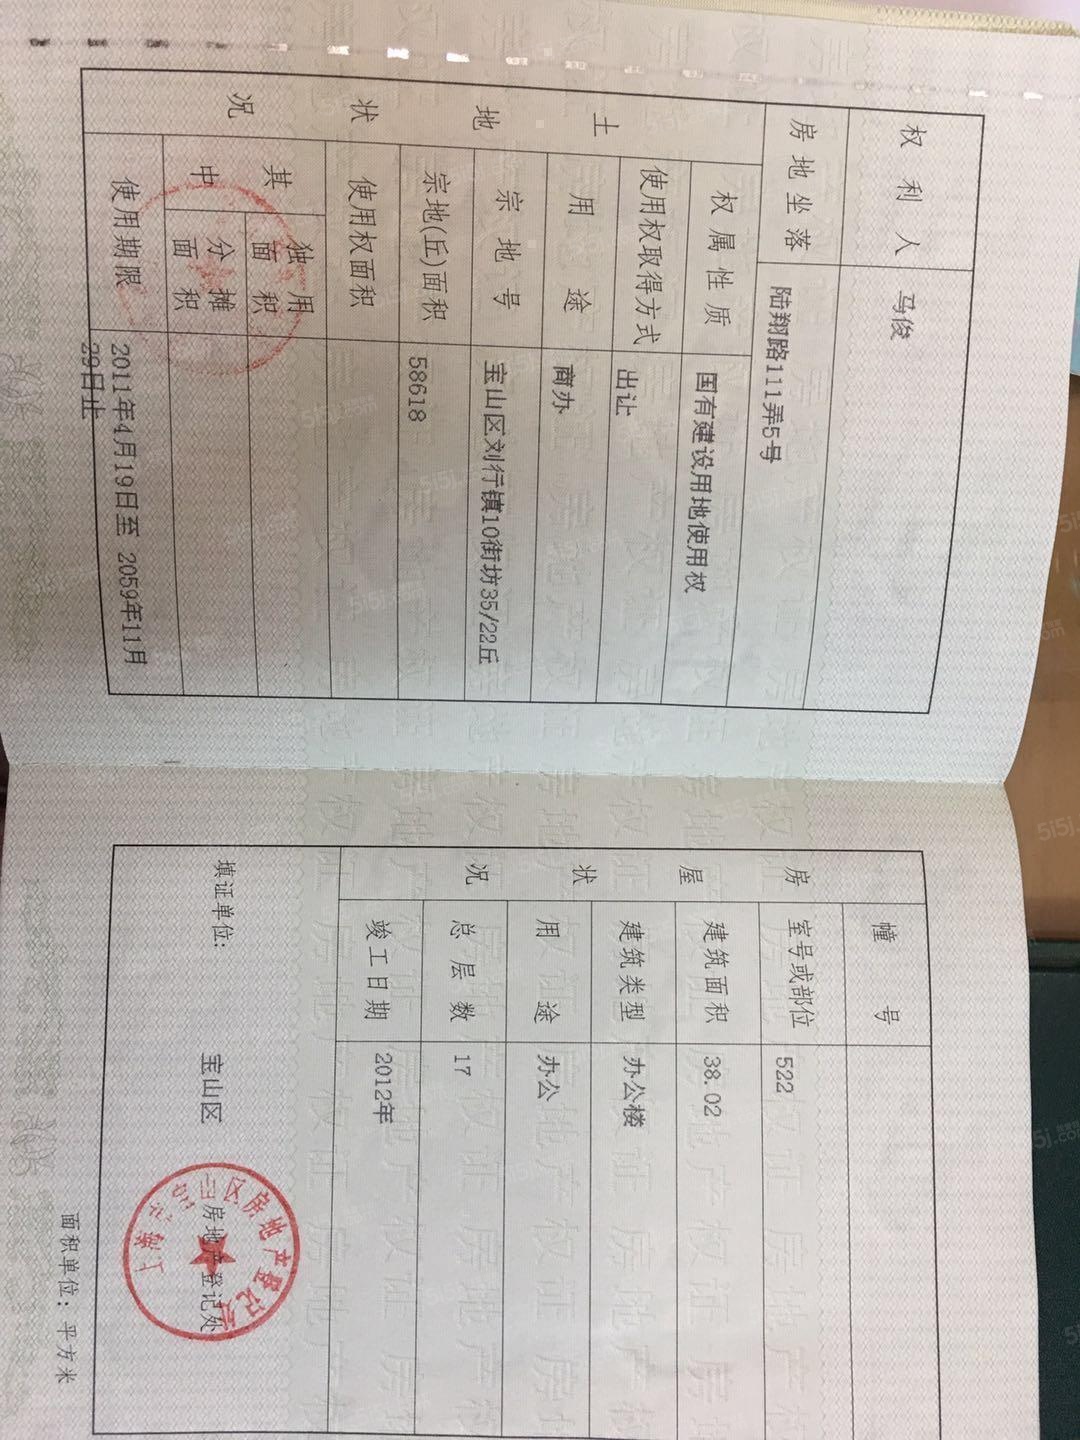 权利人 马俊
房地坐落 陆翔路111弄5号
土地状况
权属性质 国有建设用地使用权
使用权取得方式 出让
用途 商办
宗地号 宝山区刘行镇10街坊35/22丘
宗地(丘)面积 58618
使用权面积
其中
独用面积
分摊面积
使用期限 2011年4月19日至 2059年11月
29日止
幢号
房屋状况
室号或部位 522
建筑面积 38.02
建筑类型 办公楼
用途 办公
总层数 17
竣工日期 2012年
填证单位: 宝山区 房地产登记处
面积单位: 平方米
5i5j.com